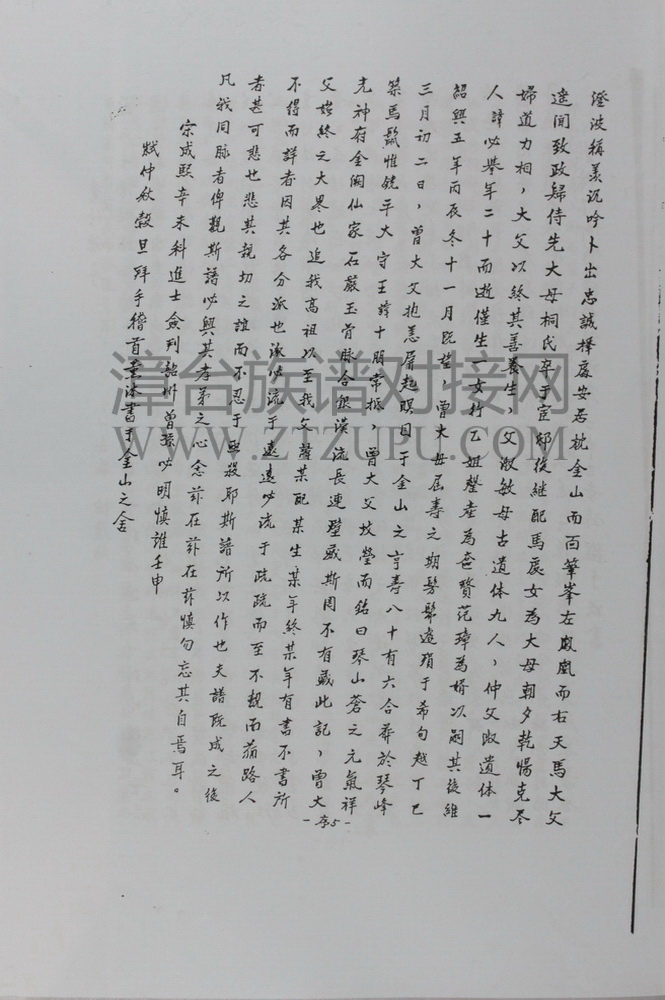 澄波稱羡沉吟卜出忠誠擇處安居枕金山而百葦峯左鳳凰而右天馬大父
遂聞致政歸侍先大母桐氏卒于宦邸後継配馬處女為大母朝夕乾惕克尽
婦道力相,大父以終其善養生,父淑敏母古遺体九人,仲父淑遺体一
人諱必舉年二十而逝僅生一女行乙姐整產為奩贅范璋為婿以嗣其後維
紹興五年丙辰冬十一月既望,曾大母屈壽之期髣髴遺殞于希句越丁巳
三月初二日,曾大父抱恙屬起瞑目于金山之亨壽八十有六合葬於琴峰
築馬鬣惟饒平大守王諱十朋常抵,曾大父坟塋而銘曰琴山蒼之元氣祥
允神府金闕仙家石巖玉骨脉合銀漢流長連璧藏斯罔不有藏此記,曾大
父始終之大畧也追我高祖以至我父諱某配某生某年終某年有書不書所
不得而詳者因其各分派也派必流于遠遠必流于疏疏而至不親而猶路人
者甚可悲也悲其親切之誼而不忍于 耶斯譜所以作也夫譜既成之後
凡我同脉者俾覩斯譜必興其孝弟之心念茲在茲在茲慎勿忘其自焉耳。
宗咸熙辛未科進士僉判韶州曾孫必明慎誰壬申
弑仲秋穀旦拜手稽首薰沐書于金山之舍
-序5-
漳台族谱对接网
WWW.ZTZUPU.COM